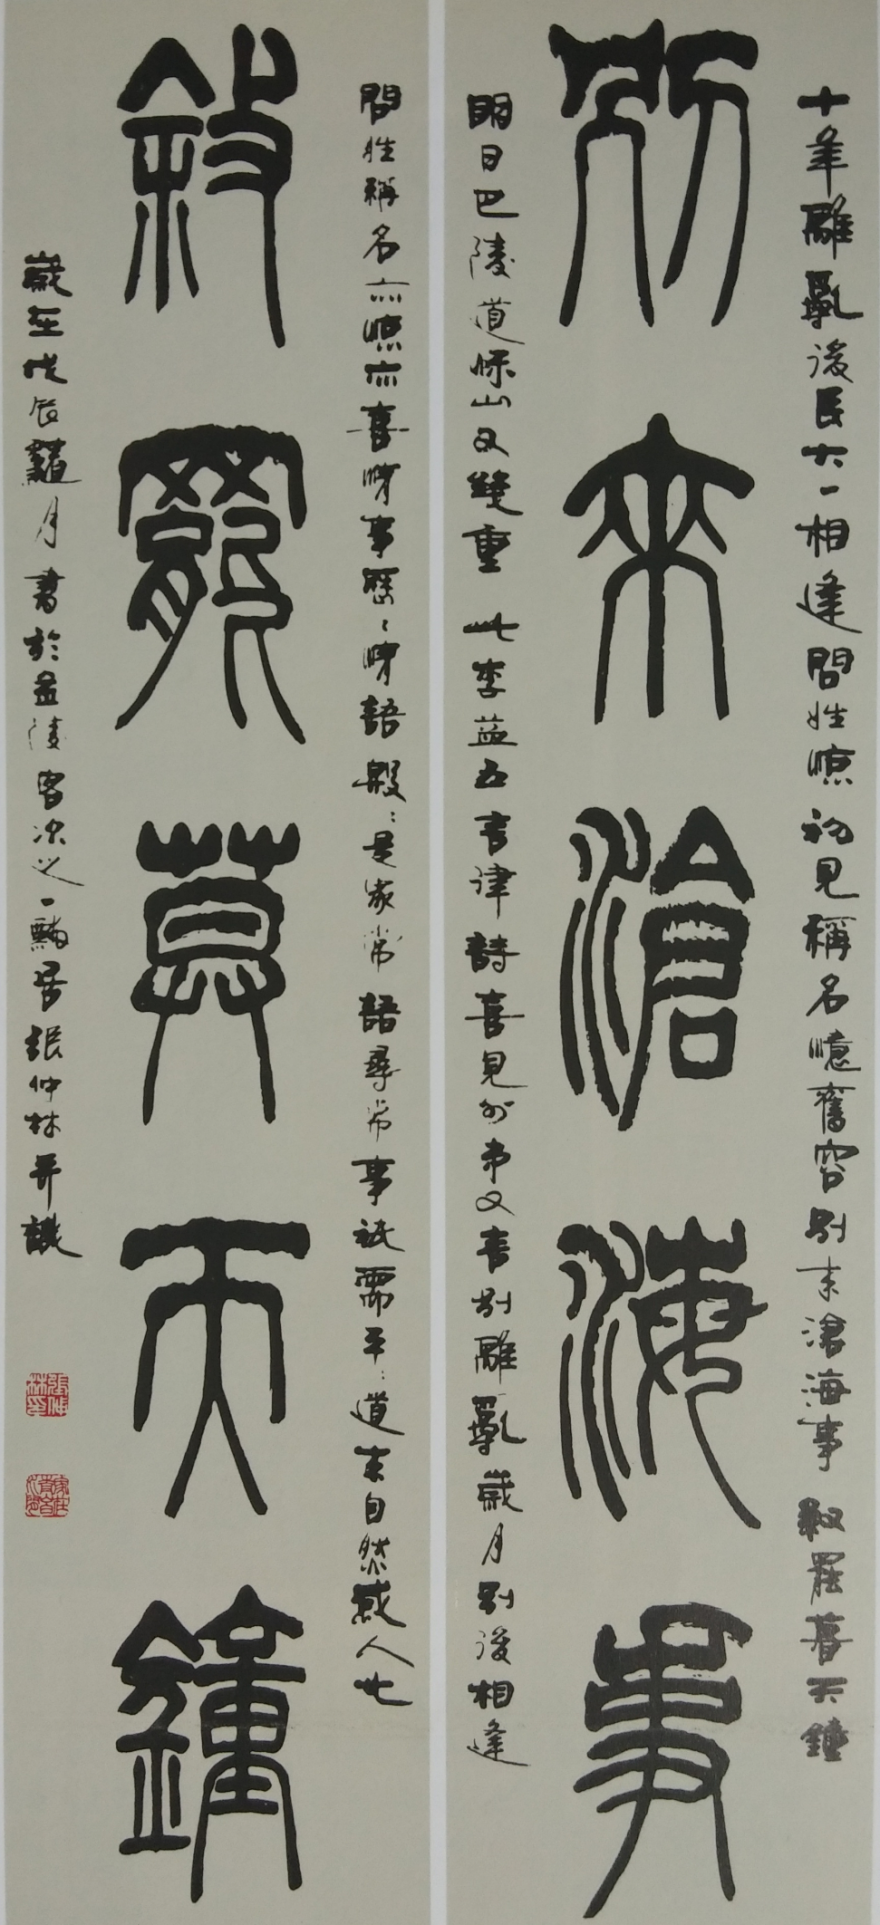 十年離亂後長大一相逢問姓惊初見稱名憶舊容別來滄海事叙罷暮天鐘
別來滄海事
明日巴陵道秋山又幾重 此李益五言律詩喜見外弟又言別離亂歲月別後相逢
問姓稱名亦惊亦喜 事歷〻 語般〻是家常語尋常事祇需平〻道來自然感人也
叙罷莫天鐘
歲在戊辰臘月書於 陵 次之一 居張仲林并識
張仲林印